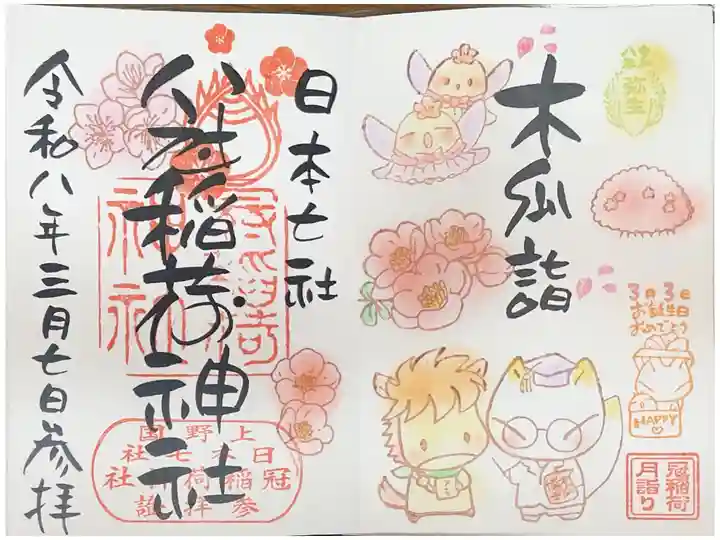 木瓜詣
弥生
3月3日
お誕生日
おめでとう
HAPPY
冠稲荷
月詣り
日本七社
冠稲荷神社
令和八年三月七日参拝
上野国
日本七社
冠稲荷神社